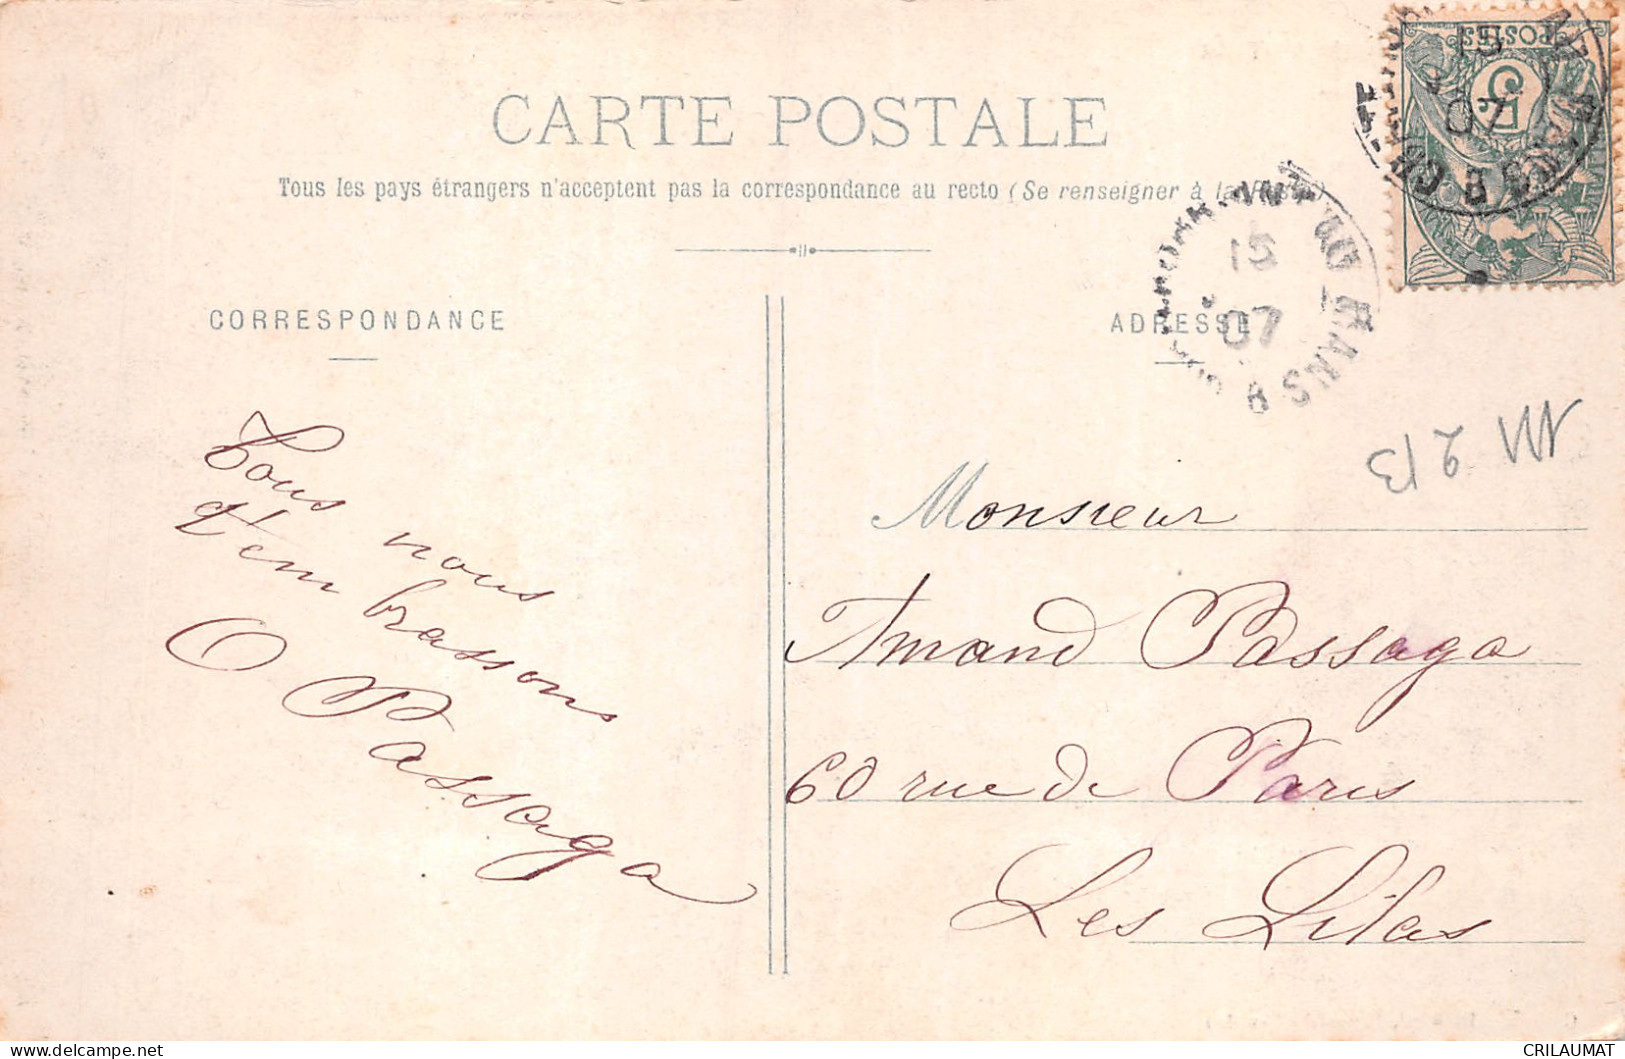 CARTE POSTALE
Tous les pays étrangers n'acceptent pas la correspondance au recto (Se renseigner à la Poste)
CORRESPONDANCE
Tous nous
t'em brassons
O Passaga
ADRESSE
Monsieur
Amand Passaga
60 rue de Paris
Les Lilas
POSTES
5
15
07
15
07
LE MANS A
213
CRILAUMAT